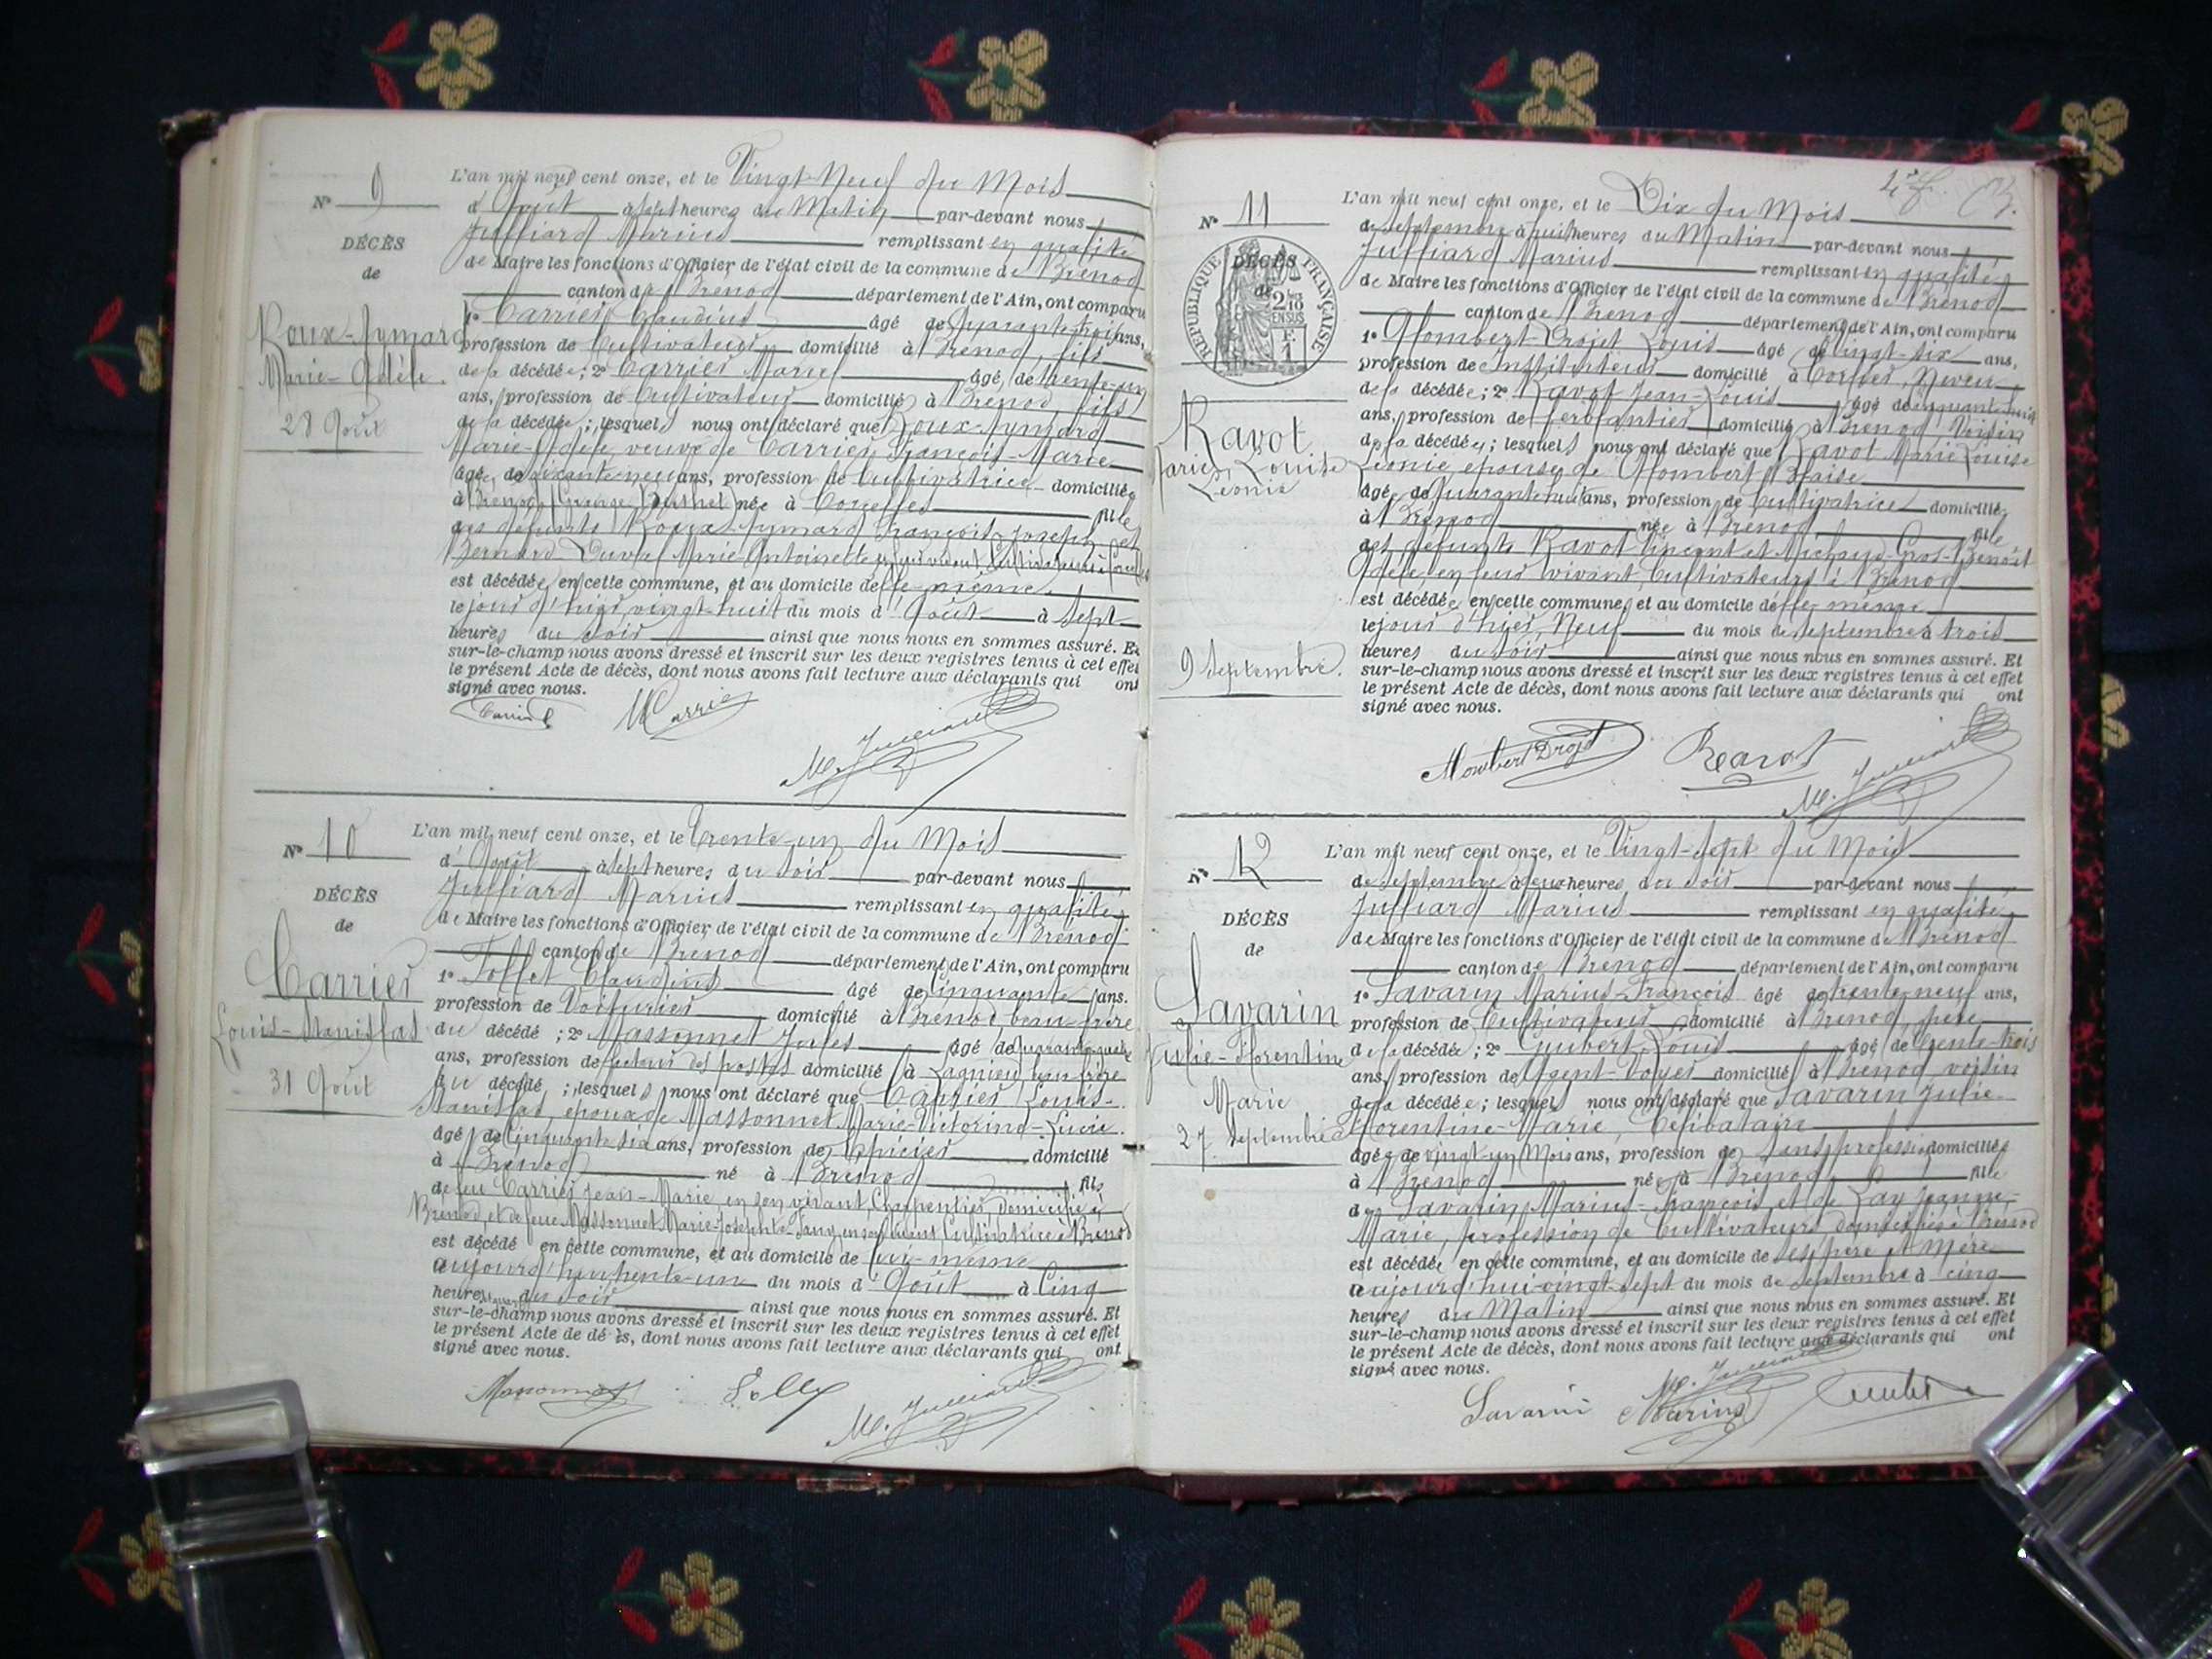 N° 9
DÉCÈS
de
Roux-Aymard
Marie-Adèle.
28 Août
L'an mil neuf cent onze, et le Vingt-Neuf du Mois
d'Août à sept heures du Matin par-devant nous
Julliard Marius remplissant en qualité
de Maire les fonctions d'Officier de l'état civil de la commune de Brénod
canton de Brénod département de l'Ain, ont comparu
1° Carrier Claudius âgé de quarante ans,
profession de Cultivateur domicilié à Brénod, fils
de la décédée ; 2° Carrier Marie âgé de trente-un
ans, profession de Cultivateur domicilié à Brénod, fils
de la décédée ; lesquels nous ont déclaré que Roux-Aymard
Marie-Adèle, veuve de Carrier François-Marie
âgée de soixante-neuf ans, profession de Cultivatrice domiciliée
à Brénod née à Corcelles fille
des défunts Roux-Aymard François-Joseph et
Bernard-Duval Marie-Antoinette en leur vivant Cultivateurs à
est décédée en cette commune, et au domicile de elle-même
le jour d'hier, vingt-huit du mois d'Août à sept
heures du soir ainsi que nous nous en sommes assuré. Et
sur-le-champ nous avons dressé et inscrit sur les deux registres tenus à cet effet
le présent Acte de décès, dont nous avons fait lecture aux déclarants qui ont
signé avec nous.
Carrier MCarrier
M. Julliard
N° 10
DÉCÈS
de
Carrier
Louis-Stanislas
31 Août
L'an mil neuf cent onze, et le trente-un du Mois
d'Août à sept heures du soir par-devant nous
Julliard Marius remplissant en qualité
de Maire les fonctions d'Officier de l'état civil de la commune de Brénod
canton de Brénod département de l'Ain, ont comparu
1° Tollet Claudius âgé de cinquante ans.
profession de Voiturier domicilié à Brénod beau-frère
du décédé ; 2° Massonnet Jules âgé de quarante-quatre
ans, profession de facteur des postes domicilié à Lagnieu beau-frère
du décédé ; lesquels nous ont déclaré que Carrier Louis-
Stanislas, époux de Massonnet Marie-Victorine-Lucie
âgé de Cinquante six ans, profession de Epicier domicilié
à Brénod né à Brénod fils
de feu Carrier Jean-Marie en son vivant Charpentier, domicilié à
Brénod, et de feue Massonnet Marie-Josephte-Fany, en son vivant Cultivatrice à Brénod
est décédé en cette commune, et au domicile de lui-même
aujourd'hui trente-un du mois d'Août à Cinq
heures du soir ainsi que nous nous en sommes assuré. Et
sur-le-champ nous avons dressé et inscrit sur les deux registres tenus à cet effet
le présent Acte de dé ès, dont nous avons fait lecture aux déclarants qui ont
signé avec nous.
Massonnet
M. Julliard
N° 11
DÉCÈS
de
RÉPUBLIQUE FRANÇAISE
Ravot
Marie Louise
Léonie
9 Septembre.
L'an mil neuf cent onze, et le Dix du Mois
de Septembre à huit heures du Matin par-devant nous
Julliard Marius remplissant en qualité
de Maire les fonctions d'Officier de l'état civil de la commune de Brénod
canton de Brénod département de l'Ain, ont comparu
1° Mombert-Drojet Louis âgé de Vingt-six ans,
profession de Instituteur domicilié à Corlier, Neveu
de la décédée ; 2° Ravot Jean-Louis âgé de
ans, profession de ferblantier domicilié à Brénod Voisin
de la décédée ; lesquels nous ont déclaré que Ravot Marie Louise
Léonie, épouse de Mombert Blaise
âgée de Quarante huit ans, profession de Cultivatrice domiciliée
à Brénod née à Brénod fille
des défunts Ravot Vincent et Michaud-Gros-Benoît
Adèle, en leur vivant Cultivateurs à Brénod
est décédée en cette commune, et au domicile de elle-même
le jour d'hier, Neuf du mois de Septembre à trois
heures du soir ainsi que nous nous en sommes assuré. Et
sur-le-champ nous avons dressé et inscrit sur les deux registres tenus à cet effet
le présent Acte de décès, dont nous avons fait lecture aux déclarants qui ont
signé avec nous.
Mombert Drojet Ravot
M. Julliard
N° 12
DÉCÈS
de
Savarin
Julie-Florentine
Marie
27 Septembre
L'an mil neuf cent onze, et le Vingt-Sept du Mois
de Septembre à deux heures du soir par-devant nous
Julliard Marius remplissant en qualité
de Maire les fonctions d'Officier de l'état civil de la commune de Brénod
canton de Brénod département de l'Ain, ont comparu
1° Savarin Marius-François âgé de trente-neuf ans,
profession de Cultivateur domicilié à Brénod, père
de la décédée ; 2° Guubert Louis âgé de trente-trois
ans, profession de Agent-Voyer domicilié à Brénod voisin
de la décédée ; lesquels nous ont déclaré que Savarin Julie
Florentine-Marie, Célibataire
âgée de vingt un Mois ans, profession de sans profession domiciliée
à Brénod née à Brénod fille
de Savarin Marius-François et de Lay Jeanne-
Marie, profession de Cultivateurs domiciliés à Brénod
est décédée en cette commune, et au domicile de ses père et mère
aujourd'hui vingt-sept du mois de Septembre à cinq
heures du Matin ainsi que nous nous en sommes assuré. Et
sur-le-champ nous avons dressé et inscrit sur les deux registres tenus à cet effet
le présent Acte de décès, dont nous avons fait lecture aux déclarants qui ont
signé avec nous.
M. Julliard
Savarin Marius